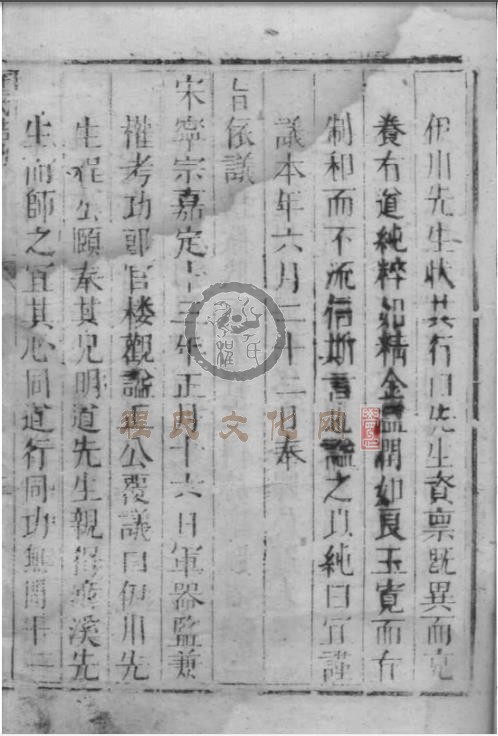 伊川先生狀其行曰先生資禀既異而充
養有道純粹如精金溫潤如良玉寬而有
制和而不流信斯言也謚之以純曰宜謹
議本年六月二十二日奉
旨依議
宋寧宗嘉定十三年正月十六日軍器監兼
權考功郎官樓觀謚正公覆議曰伊川先
生程公頤奉其兄明道先生親得濂溪先
生而師之宜其心同道行同功無閒于
程氏文化网